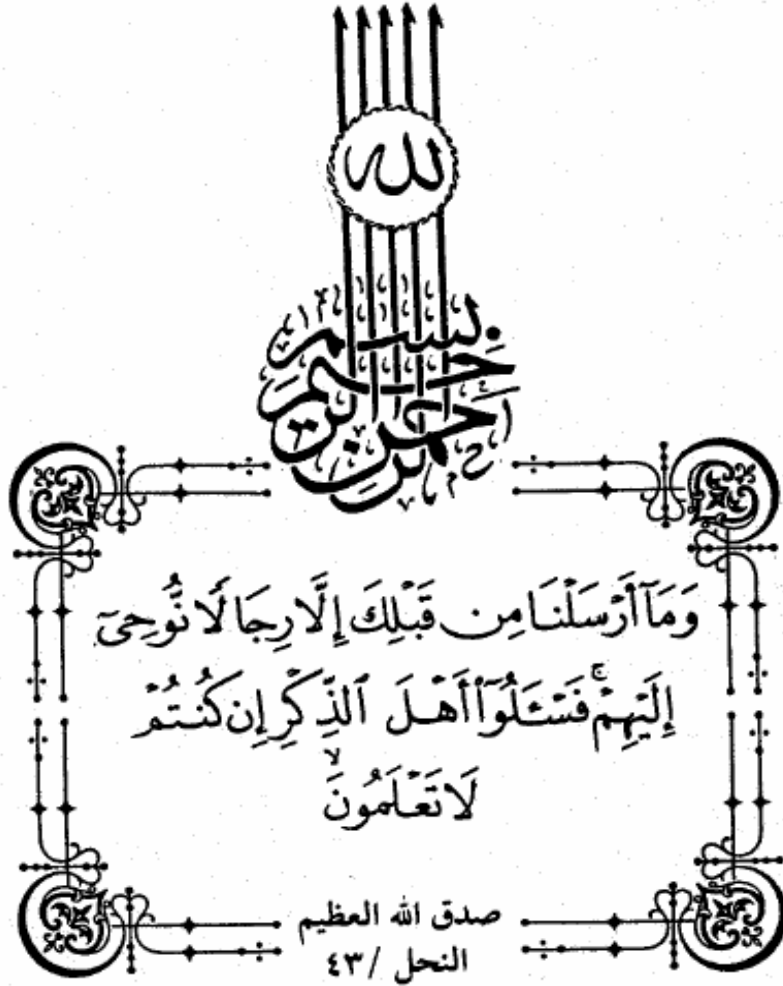 بسم الله الرحمن الرحيم
وَمَآ أَرْسَلْنَا مِن قَبْلِكَ إِلَّا رِجَالًا نُّوحِىٓ
إِلَيْهِمْ ۚ فَسْـَٔلُوٓا۟ أَهْلَ ٱلذِّكْرِ إِن كُنتُمْ
لَا تَعْلَمُونَ ۙ
صدق الله العظيم
النحل / ٤٣